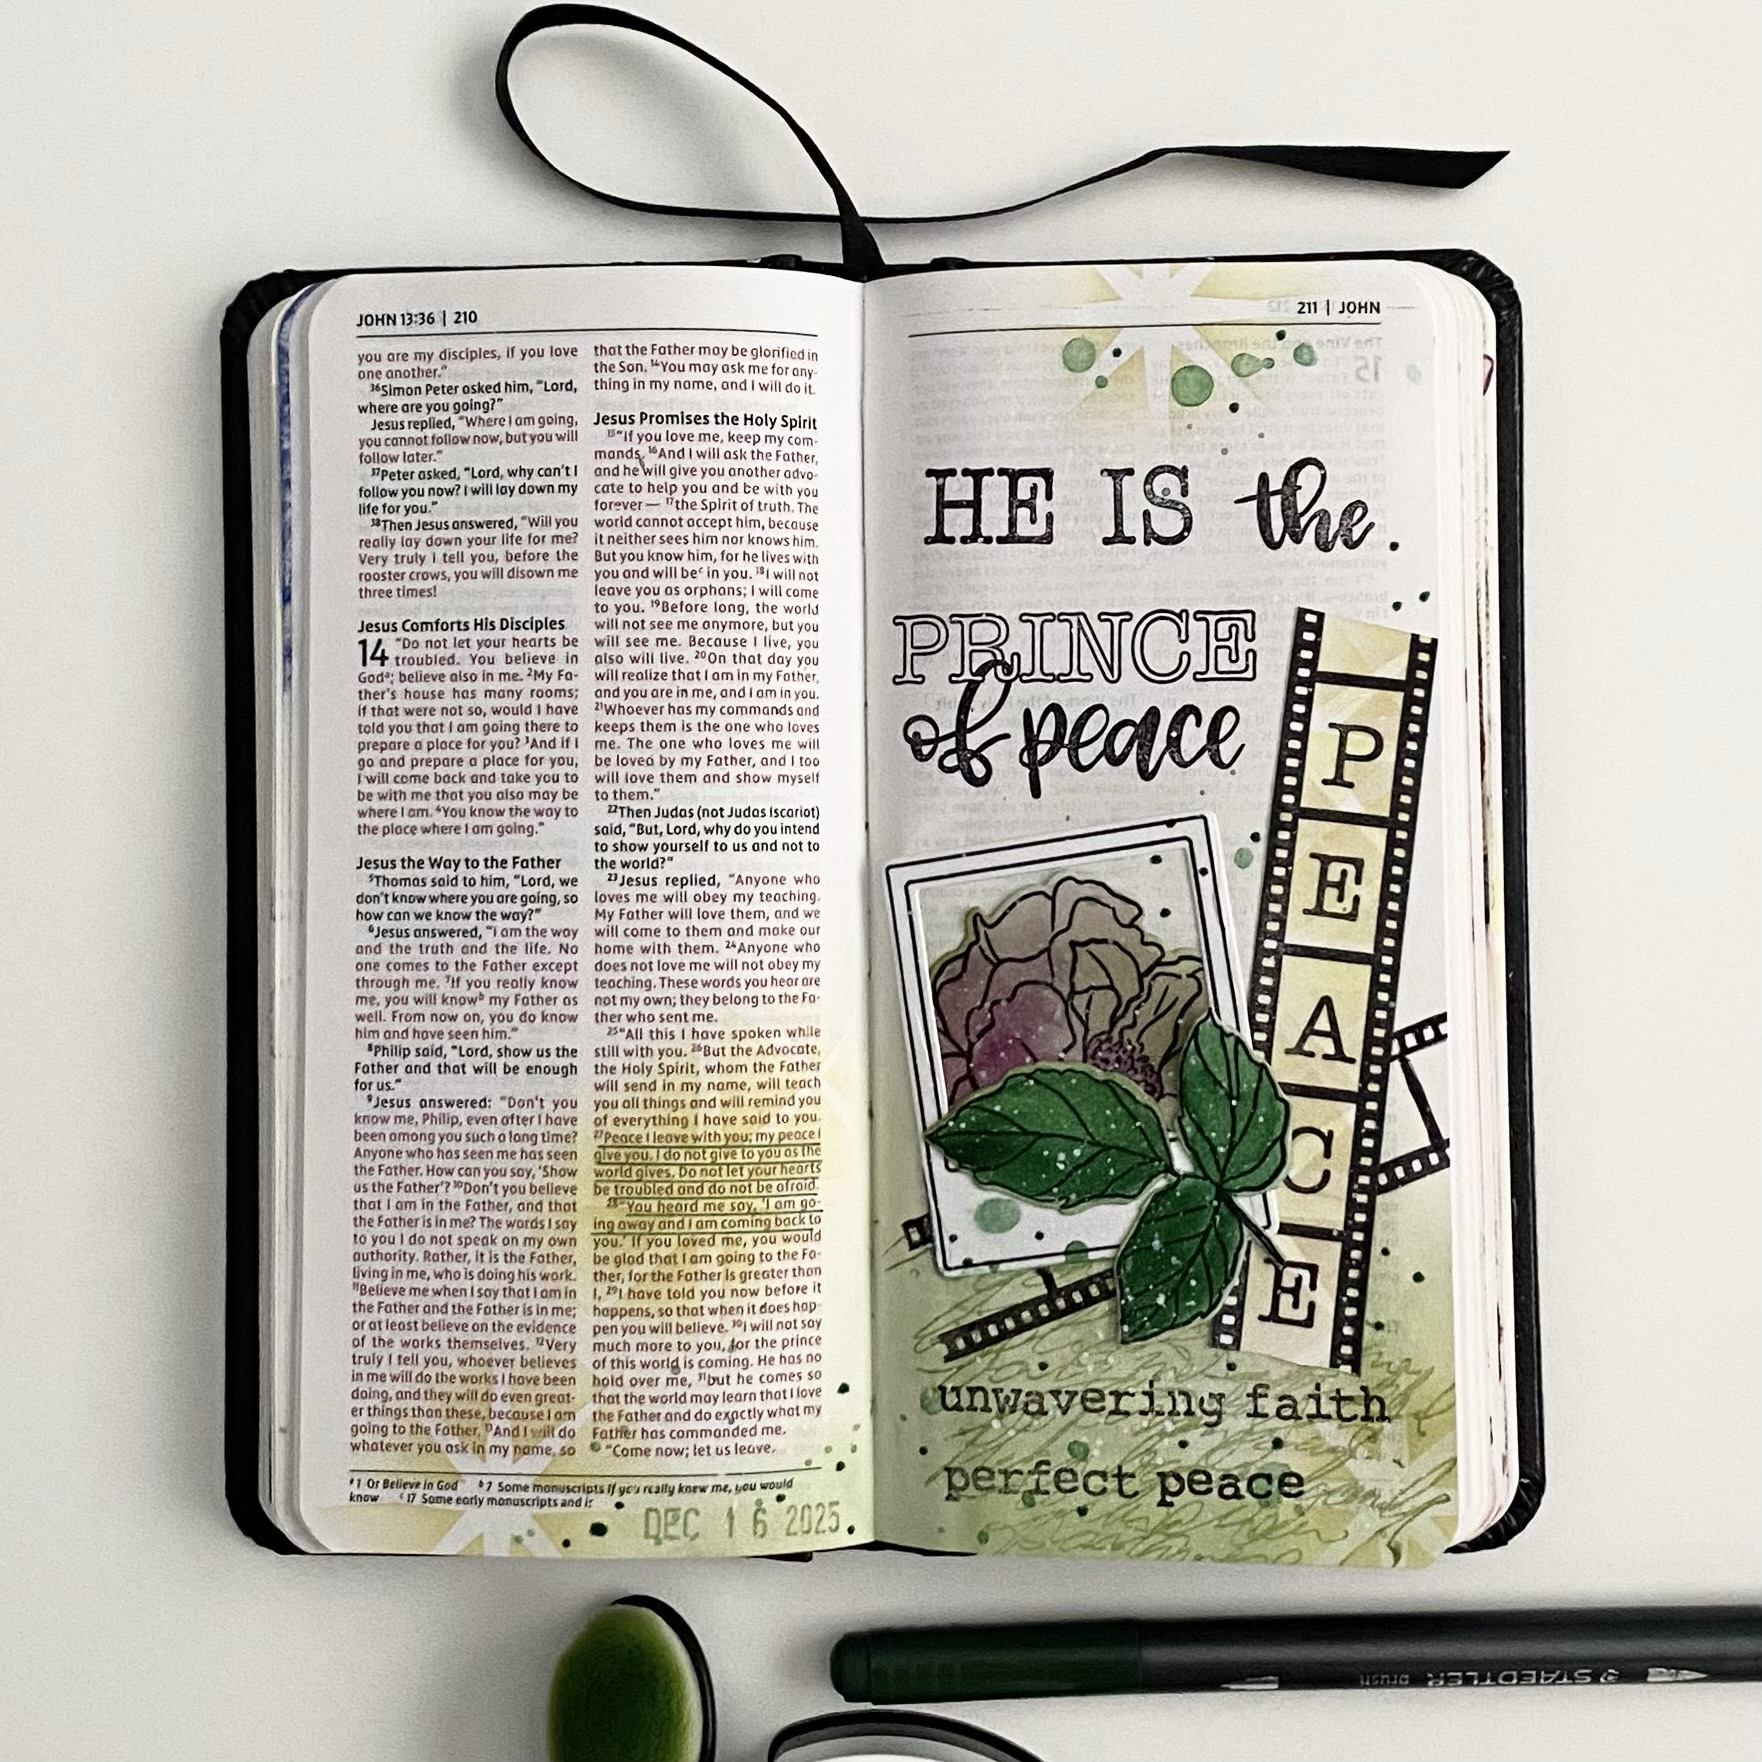 JOHN 13:36 | 210
you are my disciples, if you love
one another."
36Simon Peter asked him, "Lord,
where are you going?"
Jesus replied, "Where I am going,
you cannot follow now, but you will
follow later."
37Peter asked, "Lord, why can't I
follow you now? I will lay down my
life for you."
38Then Jesus answered, "Will you
really lay down your life for me?
Very truly I tell you, before the
rooster crows, you will disown me
three times!
Jesus Comforts His Disciples
14 "Do not let your hearts be
troubled. You believe in
Goda; believe also in me. 2My Fa-
ther's house has many rooms;
if that were not so, would I have
told you that I am going there to
prepare a place for you? 3And if I
go and prepare a place for you,
I will come back and take you to
be with me that you also may be
where I am. 4You know the way to
the place where I am going."
Jesus the Way to the Father
5Thomas said to him, "Lord, we
don't know where you are going, so
how can we know the way?"
6Jesus answered, "I am the way
and the truth and the life. No
one comes to the Father except
through me. 7If you really know
me, you will knowb my Father as
well. From now on, you do know
him and have seen him."
8Philip said, "Lord, show us the
Father and that will be enough
for us."
9Jesus answered: "Don't you
know me, Philip, even after I have
been among you such a long time?
Anyone who has seen me has seen
the Father. How can you say, 'Show
us the Father'? 10Don't you believe
that I am in the Father, and that
the Father is in me? The words I say
to you I do not speak on my own
authority. Rather, it is the Father,
living in me, who is doing his work.
11Believe me when I say that I am in
the Father and the Father is in me;
or at least believe on the evidence
of the works themselves. 12Very
truly I tell you, whoever believes
in me will do the works I have been
doing, and they will do even great-
er things than these, because I am
going to the Father. 13And I will do
whatever you ask in my name, so
that the Father may be glorified in
the Son. 14You may ask me for any-
thing in my name, and I will do it.
Jesus Promises the Holy Spirit
15"If you love me, keep my com-
mands. 16And I will ask the Father,
and he will give you another advo-
cate to help you and be with you
forever— 17the Spirit of truth. The
world cannot accept him, because
it neither sees him nor knows him.
But you know him, for he lives with
you and will bec in you. 18I will not
leave you as orphans; I will come
to you. 19Before long, the world
will not see me anymore, but you
will see me. Because I live, you
also will live. 20On that day you
will realize that I am in my Father,
and you are in me, and I am in you.
21Whoever has my commands and
keeps them is the one who loves
me. The one who loves me will
be loved by my Father, and I too
will love them and show myself
to them."
22Then Judas (not Judas Iscariot)
said, "But, Lord, why do you intend
to show yourself to us and not to
the world?"
23Jesus replied, "Anyone who
loves me will obey my teaching.
My Father will love them, and we
will come to them and make our
home with them. 24Anyone who
does not love me will not obey my
teaching. These words you hear are
not my own; they belong to the Fa-
ther who sent me.
25"All this I have spoken while
still with you. 26But the Advocate,
the Holy Spirit, whom the Father
will send in my name, will teach
you all things and will remind you
of everything I have said to you.
27Peace I leave with you; my peace I
give you. I do not give to you as the
world gives. Do not let your hearts
be troubled and do not be afraid.
28"You heard me say, 'I am go-
ing away and I am coming back to
you.' If you loved me, you would
be glad that I am going to the Fa-
ther, for the Father is greater than
I. 29I have told you now before it
happens, so that when it does hap-
pen you will believe. 30I will not say
much more to you, for the prince
of this world is coming. He has no
hold over me, 31but he comes so
that the world may learn that I love
the Father and do exactly what my
Father has commanded me.
"Come now; let us leave.
a1 Or Believe in God b7 Some manuscripts If you really knew me, you would
know c17 Some early manuscripts and is
DEC 16 2025
211 | JOHN
HE IS the
PRINCE
of peace
PEACE
unwavering faith
perfect peace
STAEDTLER brush